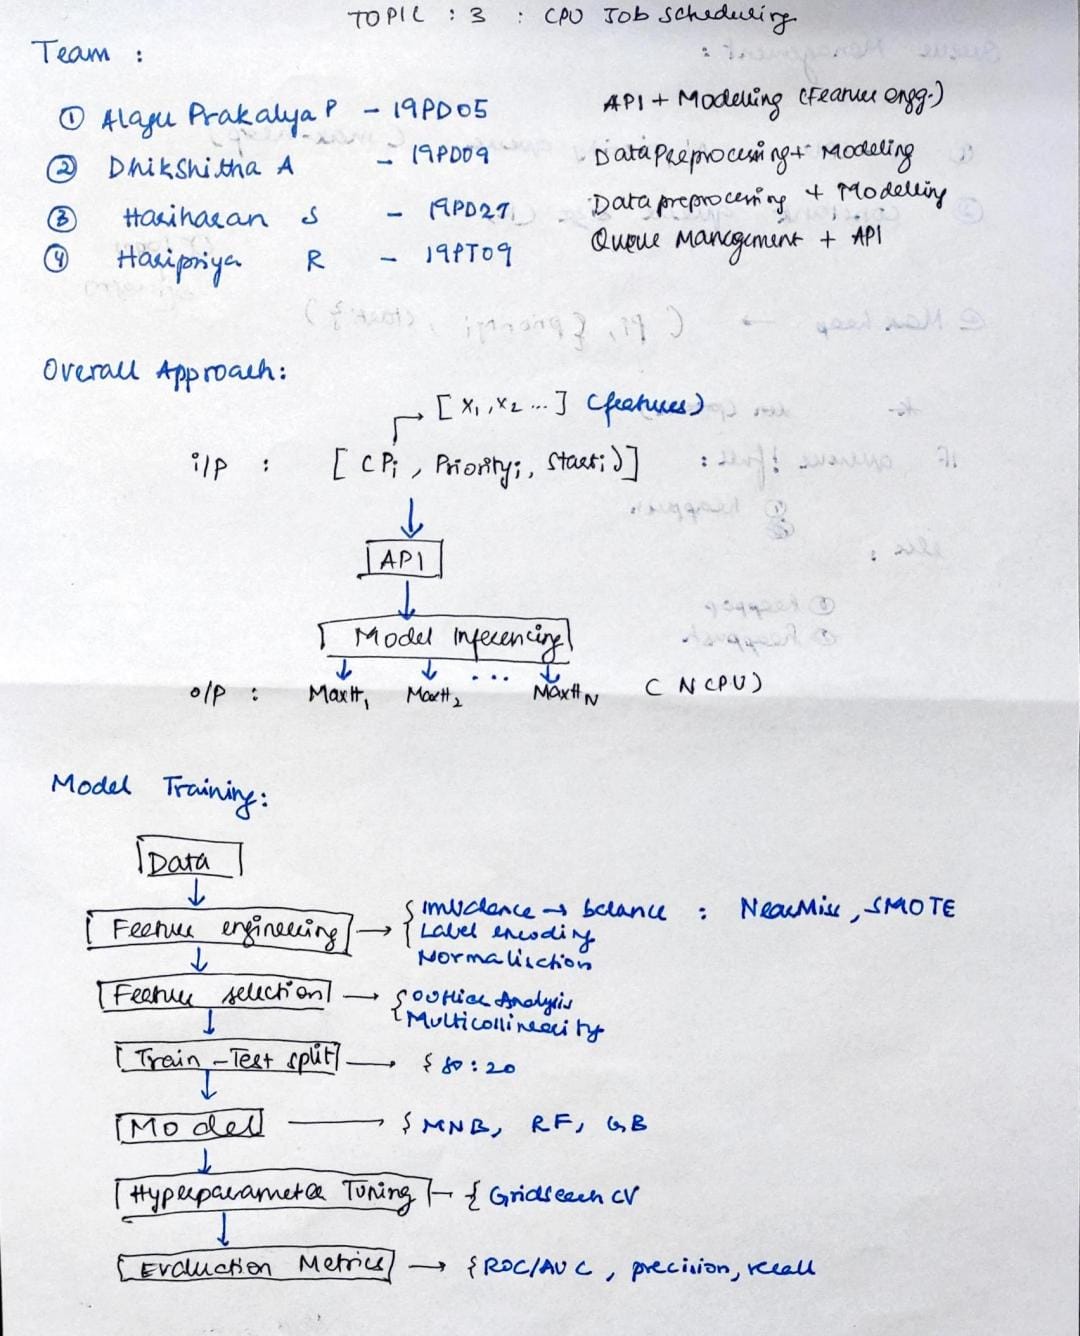 TOPIC : 3 : CPU Job scheduling
Team :
① Alagu Prakalya P - 19PD05 API + Modelling (Feature engg.)
② Dhikshitha A - 19PD09 Data Preprocessing + Modeling
③ Hariharan S - 19PD27 Data preprocessing + Modelling
④ Haripriya R - 19PT09 Queue Management + API
Overall Approach:
[ x₁, x₂ ... ] (features)
i/p : [ ( Pᵢ , Priorityᵢ, Startᵢ ) ]
API
Model Inferencing
...
o/p : MaxH₁ MaxH₂ MaxH N ( N CPU )
Model Training:
Data
Feature engineering { Imbalance → balance : NearMiss, SMOTE
Label encoding
Normalisation
Feature selection { Outlier Analysis
Multicollinearity
Train - Test split { 80 : 20
Model { MNB, RF, GB
Hyperparameter Tuning { Gridsearch CV
Evaluation Metrics { ROC/AUC , precision, recall